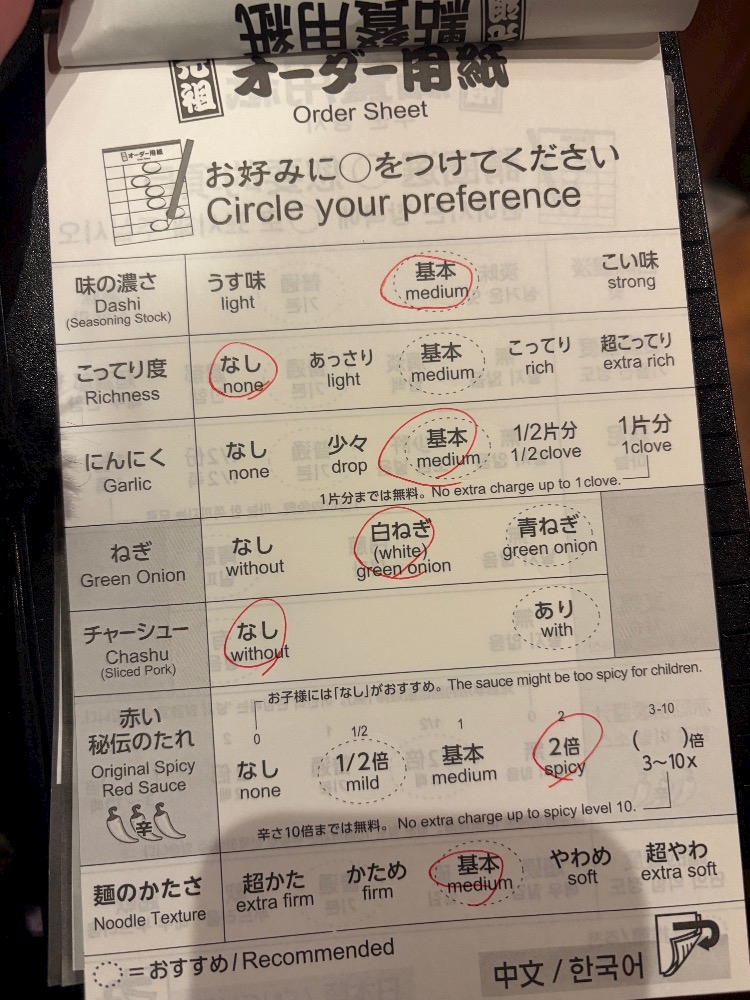 點餐用紙
元祖 オーダー用紙
Order Sheet
オーダー用紙
お好みに○をつけてください
Circle your preference
味の濃さ
Dashi
(Seasoning Stock)
うす味
light
基本
medium
こい味
strong
こってり度
Richness
なし
none
あっさり
light
基本
medium
こってり
rich
超こってり
extra rich
にんにく
Garlic
なし
none
少々
drop
基本
medium
1/2片分
1/2clove
1片分
1clove
1片分までは無料。No extra charge up to 1clove.
ねぎ
Green Onion
なし
without
白ねぎ
(white)
green onion
青ねぎ
green onion
チャーシュー
Chashu
(Sliced Pork)
なし
without
あり
with
赤い
秘伝のたれ
Original Spicy
Red Sauce
辛
お子様には「なし」がおすすめ。The sauce might be too spicy for children.
0
なし
none
1/2
1/2倍
mild
1
基本
medium
2
2倍
spicy
3-10
( )倍
3〜10x
辛さ10倍までは無料。No extra charge up to spicy level 10.
麺のかたさ
Noodle Texture
超かた
extra firm
かため
firm
基本
medium
やわめ
soft
超やわ
extra soft
=おすすめ/Recommended
中文/한국어